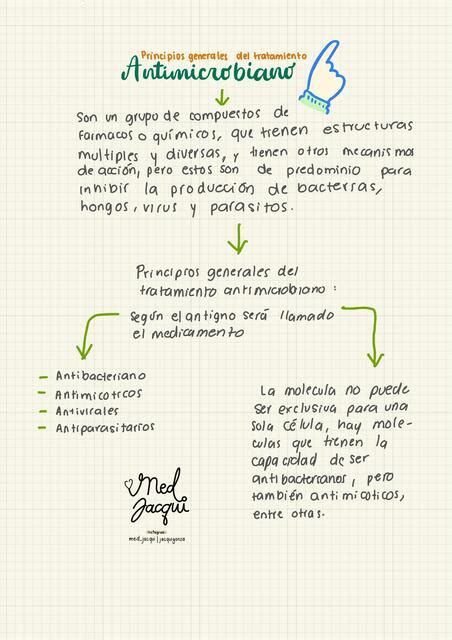 Principios generales del tratamiento
Antimicrobiano
Son un grupo de compuestos de
farmacos o químicos, que tienen estructuras
multiples y diversas, y tienen otros mecanismos
de acción, pero estos son de predominio para
inhibir la producción de bacterias,
hongos, virus y parasitos.
Principios generales del
tratamiento antimicrobiano:
según el antigno será llamado
el medicamento
- Antibacteriano
- Antimicoticos
- Antivirales
- Antiparasitarios
La molecula no puede
ser exclusiva para una
sola célula, hay mole-
culas que tienen la
capacidad de ser
antibacterianos, pero
también antimicoticos,
entre otras.
Med
Jacqui
Instagram
med_jacqui | jacquigonzo